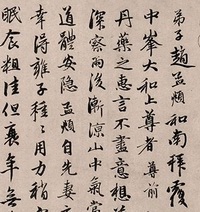 弟子趙孟頫和南拜覆
中峯大和上尊者尊前
丹藥之惠言不盡意想
深察雨後漸涼山中氣當
道體安隱孟頫自先妻
幸得雍子種種用力稍
眠食粗佳但衰年無